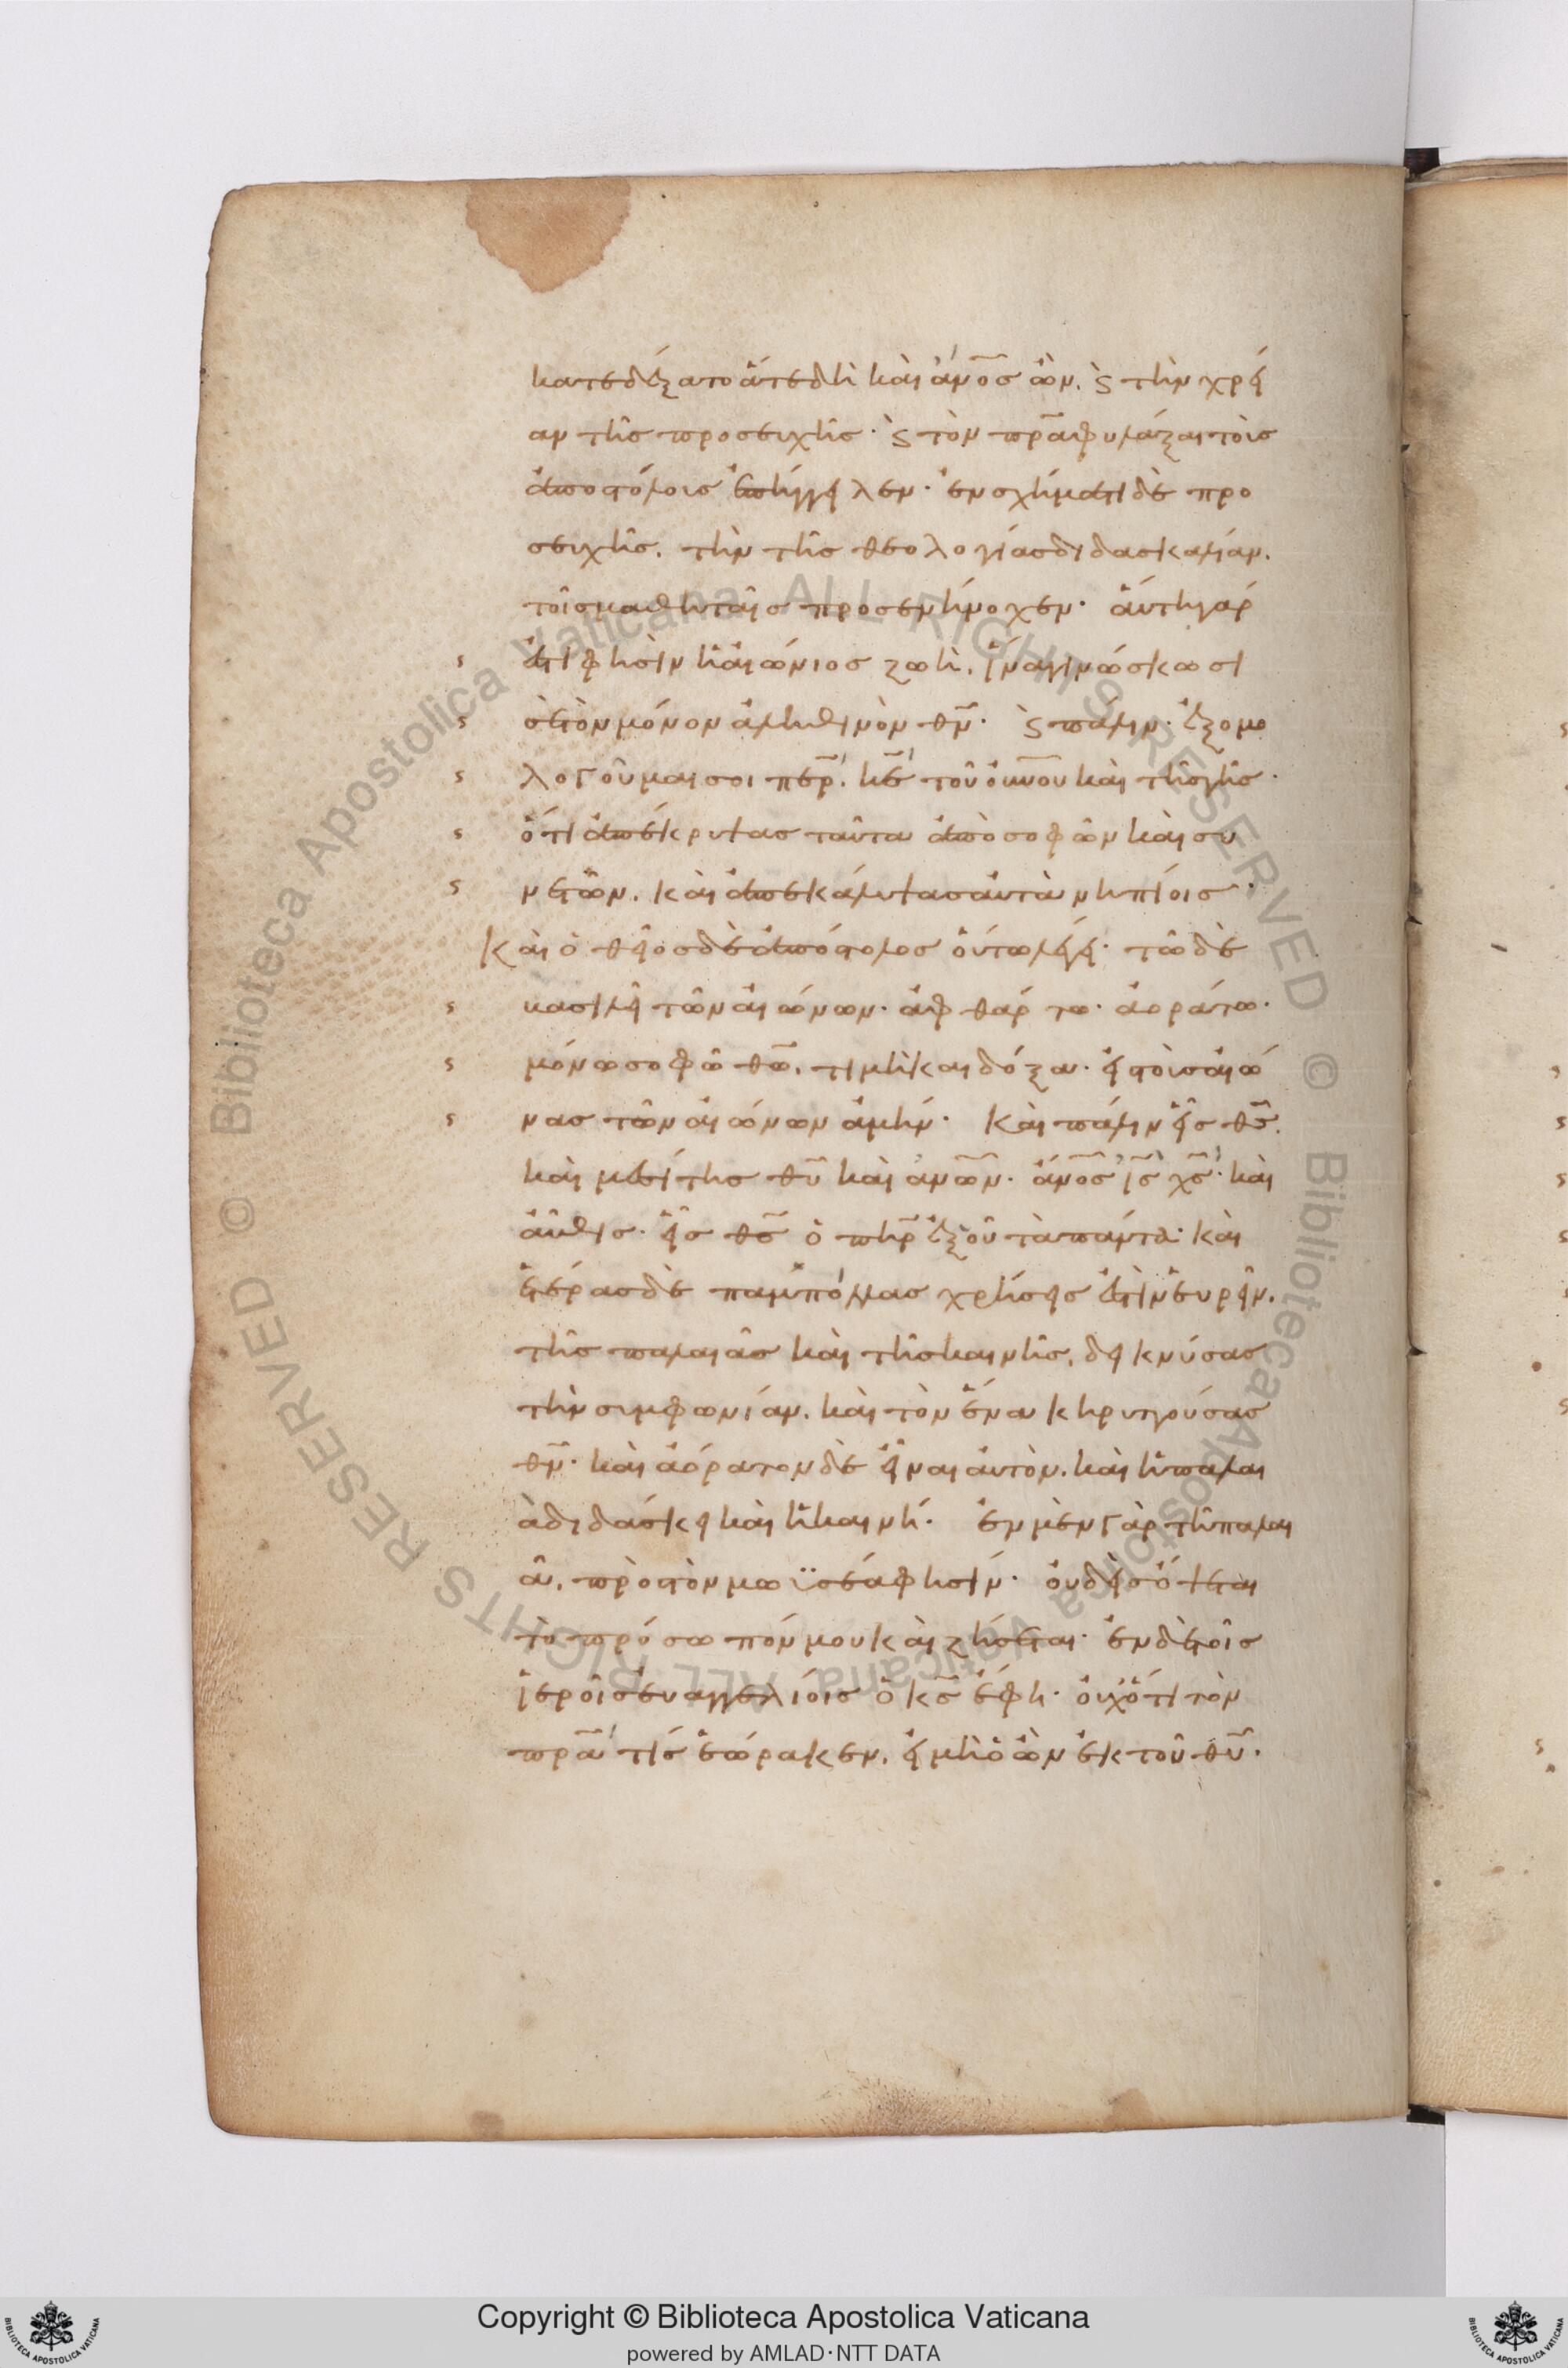 κατεδέξατο ἅτε δὴ καὶ ἀν̅ο̅ς ὤν. ϛ τὴν χρεί
αν τῆς προσευχῆς· ϛ τὸν πρ̅α φυλάξαι τοὺς
ἀποστόλους ἐπήγγειλεν· ἐν σχήματι δὲ προ
σευχῆς, τὴν τῆς θεολογίας διδασκαλίαν,
τοῖς μαθηταῖς προσενήνοχεν· αὕτη γάρ
ἐστι φησὶν ἡ αἰώνιος ζωὴ, ἵνα γινώσκωσί
σε τὸν μόνον ἀληθινὸν θ̅ν̅· ϛ πάλιν· ἐξομο
λογοῦμαι σοι πε̅ρ̅. κ̅ε̅ τοῦ ο̅υ̅ν̅ο̅υ καὶ τῆς γῆς·
ὅτι ἀπέκρυψας ταῦτα ἀπὸ σοφῶν καὶ συ
νετῶν. καὶ ἀπεκάλυψας αὐτὰ νηπίοις·
Καὶ ὁ θεῖος δὲ ἀπόστολος οὕτω λέγει· τῶ δὲ
βασιλεῖ τῶν αἰώνων· ἀφθάρτω· ἀοράτω·
μόνω σοφῶ θ̅ω̅. τιμὴ καὶ δόξα· εἰς τοὺς αἰῶ
νας τῶν αἰώνων ἀμήν· Καὶ πάλιν εἷς θ̅ς̅.
καὶ μεσίτης θ̅υ̅ καὶ ἀ̅ν̅ω̅ν· ἄ̅ν̅ο̅ς ι̅ς̅ χ̅ς̅· καὶ
αὖθις· εἷς θ̅ς̅ ὁ π̅η̅ρ̅ ἐξ οὗ τὰ πάντα· καὶ
ἑτέρας δὲ παμπόλλας χρήσεις ἐστὶν εὑρεῖν.
τῆς παλαιᾶς καὶ τῆς καινῆς, δεικνύσας
τὴν συμφωνίαν. καὶ τὸν ἕνα κηρυττούσας
θ̅ν̅· καὶ ἀόρατον δὲ εἶναι αὐτὸν. καὶ ἡ παλαι
ὰ διδάσκει καὶ ἡ καινή· ἐν μὲν γὰρ τῆ παλαι
ᾶ. πρὸς τὸν μωϋσέα φησίν· οὐδεὶς ὄψεται
τὸ πρόσωπόν μου καὶ ζήσεται· ἐν δὲ τοῖς
ἱεροῖς εὐαγγελίοις ὁ κ̅ς̅ ἔφη· οὐχ ὅτι τὸν
πρ̅α τίς ἑώρακεν. εἰ μὴ ὁ ὢν ἐκ τοῦ θ̅υ̅·
Copyright © Biblioteca Apostolica Vaticana
powered by AMLAD·NTT DATA